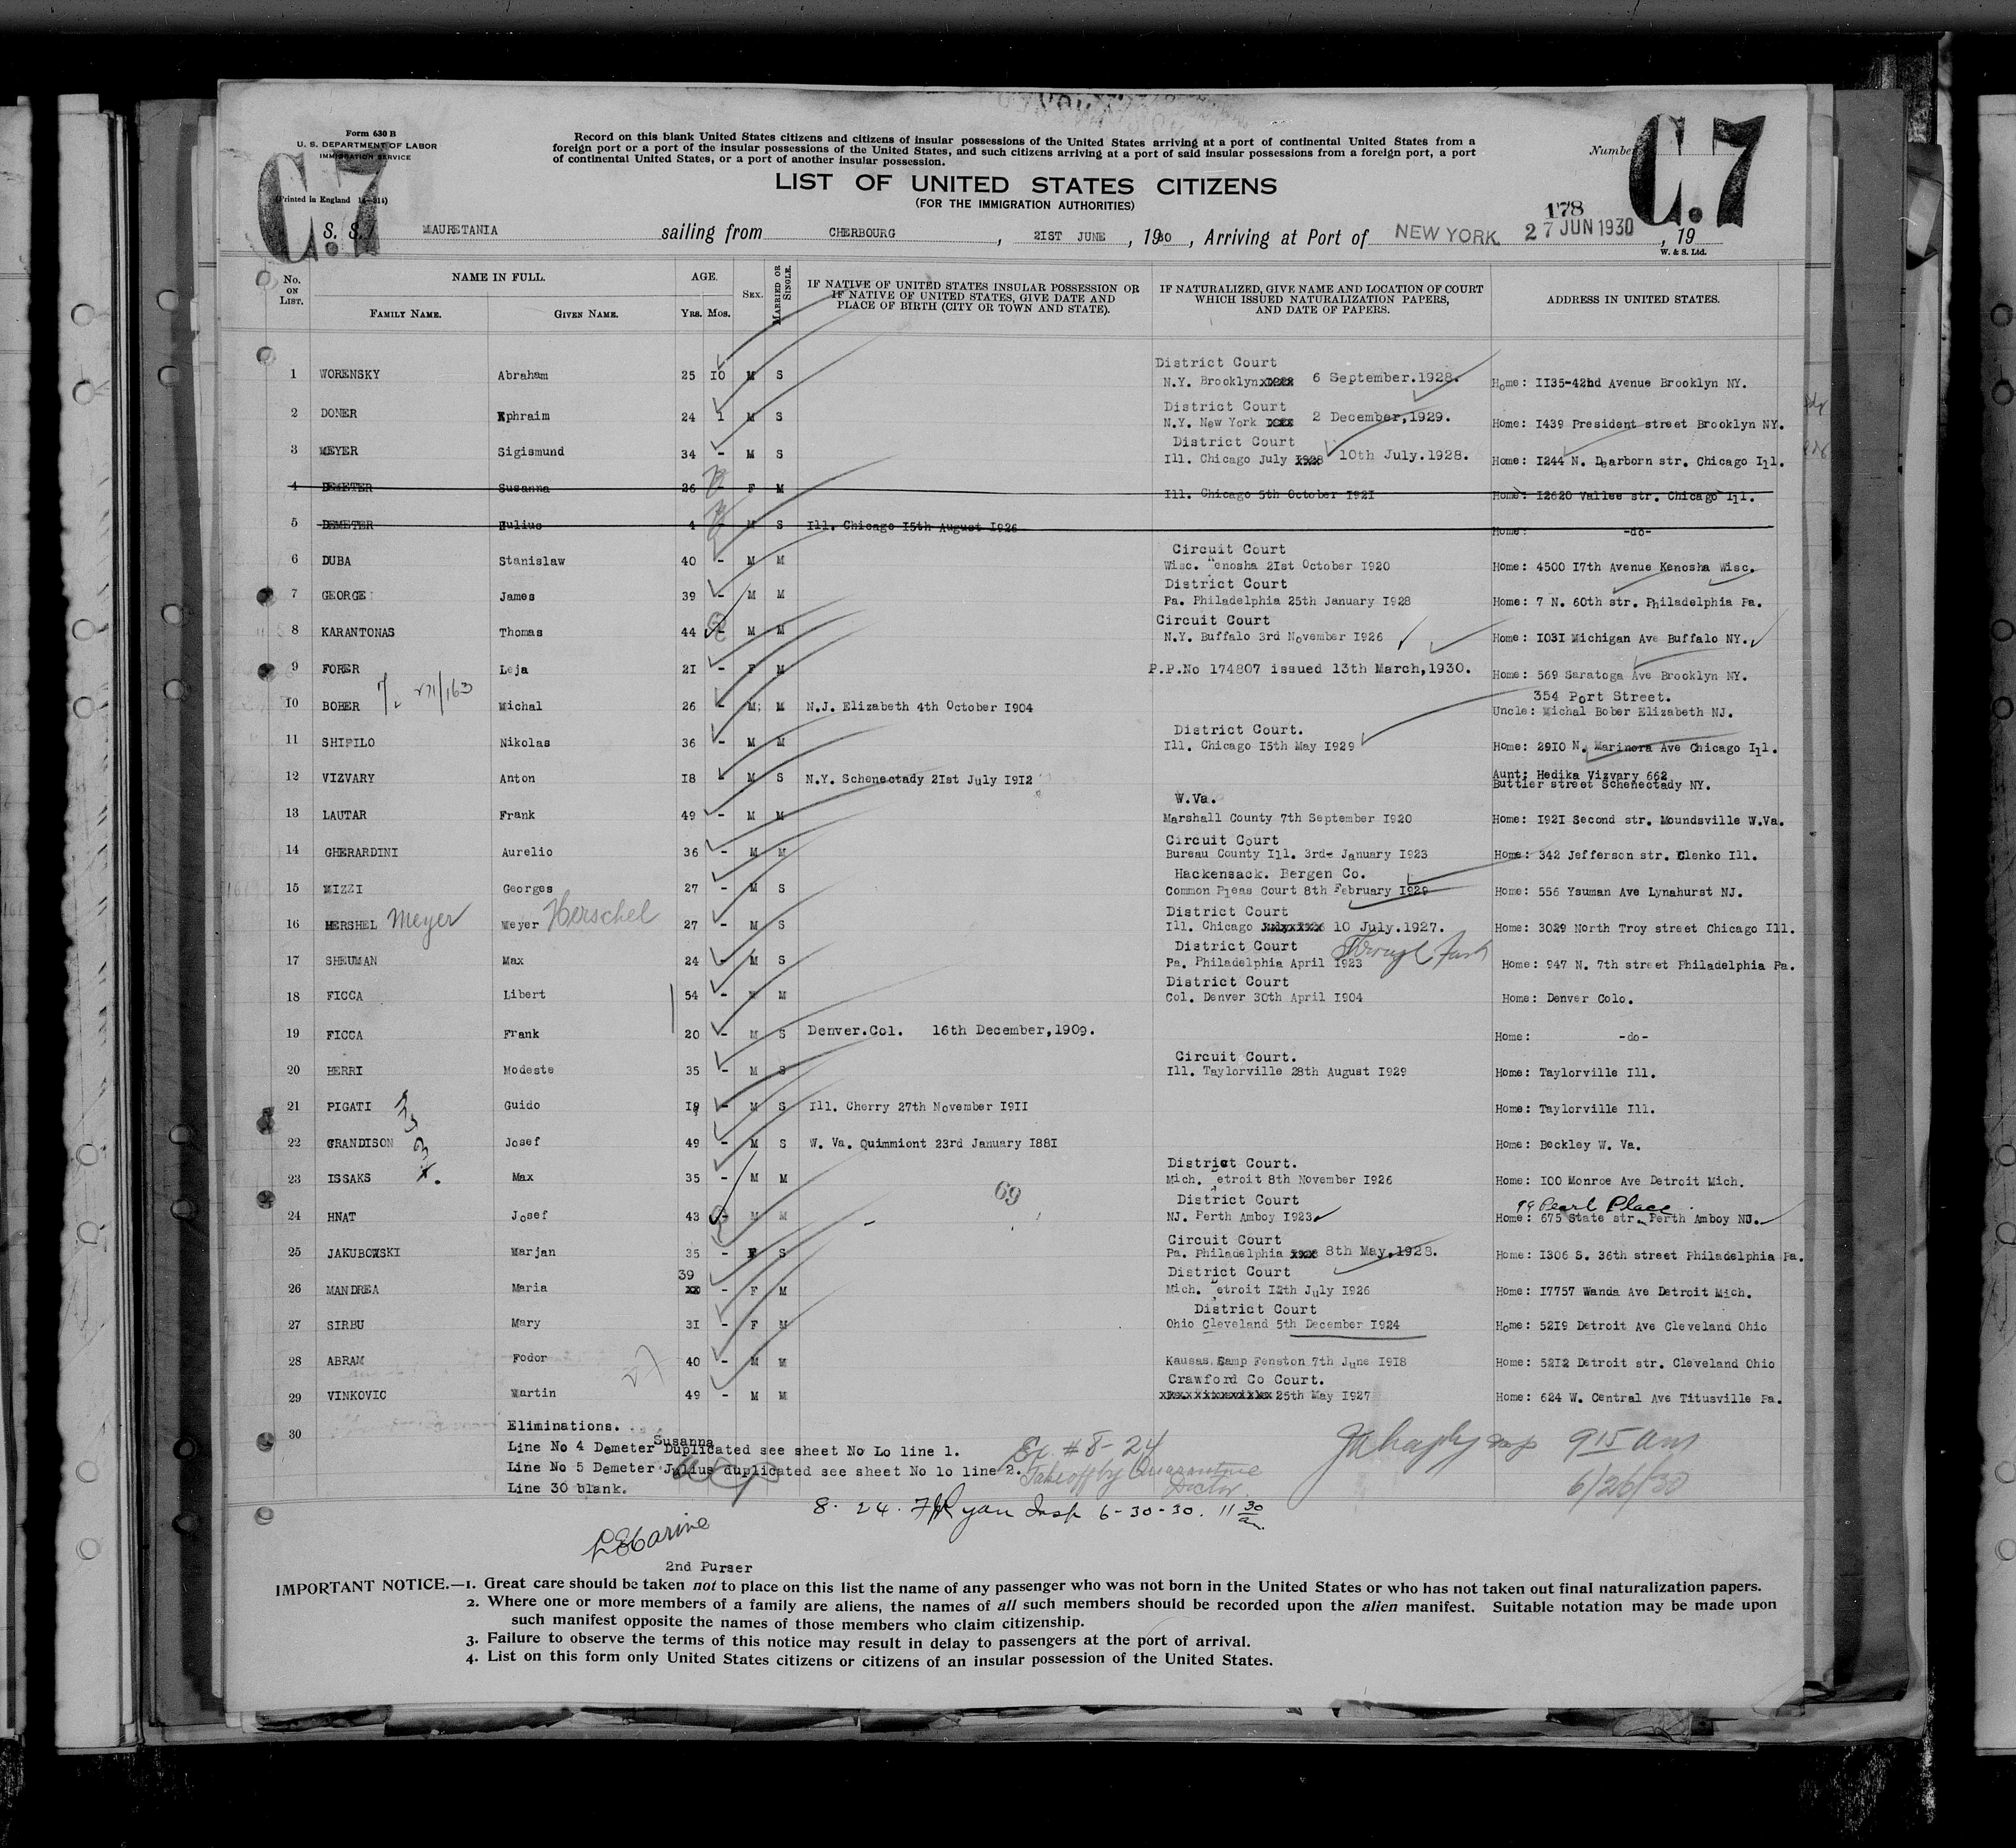 Form 630 B
U. S. DEPARTMENT OF LABOR
IMMIGRATION SERVICE
(Printed in England
C.7
Record on this blank United States citizens and citizens of insular possessions of the United States arriving at a port of continental United States from a
foreign port or a port of the insular possessions of the United States, and such citizens arriving at a port of said insular possessions from a foreign port, a port
of continental United States, or a port of another insular possession.
Number
C.7
LIST OF UNITED STATES CITIZENS
(FOR THE IMMIGRATION AUTHORITIES)
178
S. S. MAURETANIA sailing from CHERBOURG, 21ST JUNE, 1930, Arriving at Port of NEW YORK 27 JUN 1930, 19
W. & S. Ltd.
No. ON LIST. NAME IN FULL. FAMILY NAME. GIVEN NAME. AGE. YRS. MOS. SEX. MARRIED OR SINGLE. IF NATIVE OF UNITED STATES INSULAR POSSESSION OR IF NATIVE OF UNITED STATES, GIVE DATE AND PLACE OF BIRTH (CITY OR TOWN AND STATE). IF NATURALIZED, GIVE NAME AND LOCATION OF COURT WHICH ISSUED NATURALIZATION PAPERS, AND DATE OF PAPERS. ADDRESS IN UNITED STATES.
District Court
1 WORENSKY Abraham 25 10 M S N.Y. Brooklyn 6 September.1928. Home: II35-42nd Avenue Brooklyn NY.
District Court
2 DONER Ephraim 24 1 M S N.Y. New York 2 December,1929. Home: I439 President street Brooklyn NY.
District Court
3 MEYER Sigismund 34 - M S Ill. Chicago July 10th July.1928. Home: I244 N. Dearborn str. Chicago Ill.
4 DEMETER Susanna 26 - F M Ill. Chicago 5th October I92I Home: I2620 Vallee str. Chicago Ill.
5 DEMETER Julius 4 - M S Ill. Chicago I5th August I926 Home: -do-
Circuit Court
6 DUBA Stanislaw 40 - M M Wisc. Kenosha 2Ist October I920 Home: 4500 I7th Avenue Kenosha Wisc.
District Court
7 GEORGE James 39 - M M Pa. Philadelphia 25th January I928 Home: 7 N. 60th str. Philadelphia Pa.
Circuit Court
8 KARANTONAS Thomas 44 - M M N.Y. Buffalo 3rd November I926 Home: I03I Michigan Ave Buffalo NY.
9 FORER Leja 2I - F M P.P.No 174807 issued 13th March,1930. Home: 569 Saratoga Ave Brooklyn NY.
354 Port Street.
10 BOBER 271/163 Michal 26 - M M N.J. Elizabeth 4th October I904 Uncle: Michal Bober Elizabeth NJ.
District Court.
11 SHIPILO Nikolas 36 - M M Ill. Chicago I5th May I929 Home: 29I0 N. Marinora Ave Chicago Ill.
12 VIZVARY Anton I8 - M S N.Y. Schenectady 2Ist July I9I2 Aunt: Hedika Vizvary 662
Buttler street Schenectady NY.
W.Va.
13 LAUTAR Frank 49 - M M Marshall County 7th September I920 Home: I92I Second str. Moundsville W.Va.
Circuit Court
14 GHERARDINI Aurelio 36 - M M Bureau County Ill. 3rd- January I923 Home: 342 Jefferson str. Clenko Ill.
Hackensack. Bergen Co.
15 MIZZI Georges 27 - M S Common Pleas Court 8th February I929 Home: 556 Ysuman Ave Lynahurst NJ.
District Court
16 HERSHEL Meyer Meyer Herschel 27 - M S Ill. Chicago 10 July.1927. Home: 3029 North Troy street Chicago Ill.
District Court
17 SHEUMAN Max 24 - M S Pa. Philadelphia April I923 Home: 947 N. 7th street Philadelphia Pa.
District Court
18 FICCA Libert 54 - M M Col. Denver 30th April I904 Home: Denver Colo.
19 FICCA Frank 20 - M S Denver.Col. 16th December,1909. Home: -do-
Circuit Court.
20 BERRI Modeste 35 - M S Ill. Taylorville 28th August I929 Home: Taylorville Ill.
21 PIGATI Guido - M S Ill. Cherry 27th November I9II Home: Taylorville Ill.
22 GRANDISON Josef 49 - M S W. Va. Quimmiont 23rd January I88I Home: Beckley W. Va.
District Court.
23 ISSAKS Max 35 - M M Mich. Detroit 8th November I926 Home: I00 Monroe Ave Detroit Mich.
69
District Court 99 Pearl Place
24 HNAT Josef 43 - M M NJ. Perth Amboy I923 Home: 675 State str. Perth Amboy NJ.
Circuit Court
25 JAKUBOWSKI Marjan 35 - F S Pa. Philadelphia 8th May.1928. Home: I306 S. 36th street Philadelphia Pa.
39 District Court
26 MANDREA Maria xx - F M Mich. Detroit I2th July I926 Home: I7757 Wanda Ave Detroit Mich.
District Court
27 SIRBU Mary 3I - F M Ohio Cleveland 5th December I924 Home: 52I9 Detroit Ave Cleveland Ohio
28 ABRAM Fodor 40 - M M Kausas Camp Fenston 7th June I9I8 Home: 52I2 Detroit str. Cleveland Ohio
Crawford Co Court.
29 VINKOVIC Martin 49 - M M 25th May I927 Home: 624 W. Central Ave Titusville Pa.
30 Eliminations.
Line No 4 Demeter Susanna Duplicated see sheet No Lo line 1.
Line No 5 Demeter Julius duplicated see sheet No lo line 2.
Line 30 blank.
# 8-24
Take off by Quarantine
Doctor
9 15 am
6/26/30
8. 24. Ryan Insp 6-30-30. 11 30 am
2nd Purser
IMPORTANT NOTICE.—1. Great care should be taken not to place on this list the name of any passenger who was not born in the United States or who has not taken out final naturalization papers.
2. Where one or more members of a family are aliens, the names of all such members should be recorded upon the alien manifest. Suitable notation may be made upon
such manifest opposite the names of those members who claim citizenship.
3. Failure to observe the terms of this notice may result in delay to passengers at the port of arrival.
4. List on this form only United States citizens or citizens of an insular possession of the United States.